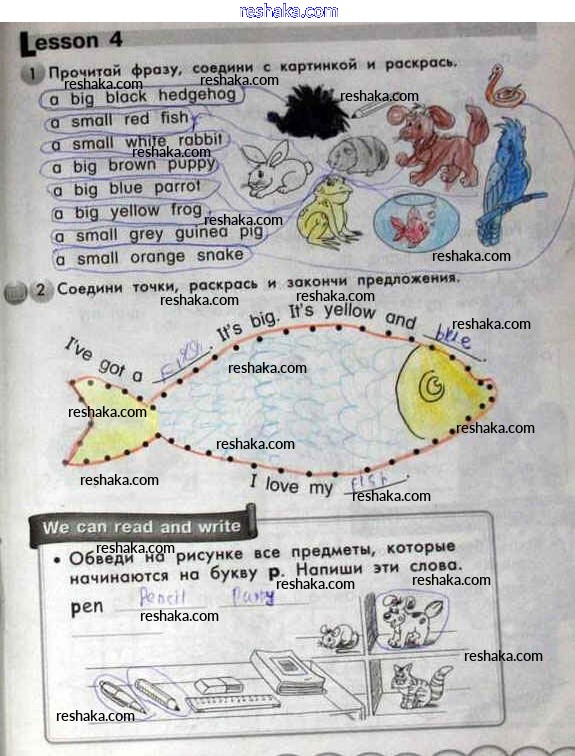 reshaka.com
Lesson 4
1 Прочитай фразу, соедини с картинкой и раскрась.
reshaka.com
reshaka.com
a big black hedgehog
reshaka.com
a small red fish
a small white rabbit
reshaka.com
a big brown puppy
a big blue parrot
reshaka.com
a big yellow frog
reshaka.com
a small grey guinea pig
reshaka.com
a small orange snake
2 Соедини точки, раскрась и закончи предложения.
reshaka.com
reshaka.com
I've got a fish. It's big. It's yellow and blue.
reshaka.com
reshaka.com
reshaka.com
reshaka.com
reshaka.com
I love my fish.
reshaka.com
We can read and write
reshaka.com
• Обведи на рисунке все предметы, которые
начинаются на букву p. Напиши эти слова.
reshaka.com
pen Pencil
reshaka.com
reshaka.com
reshaka.com